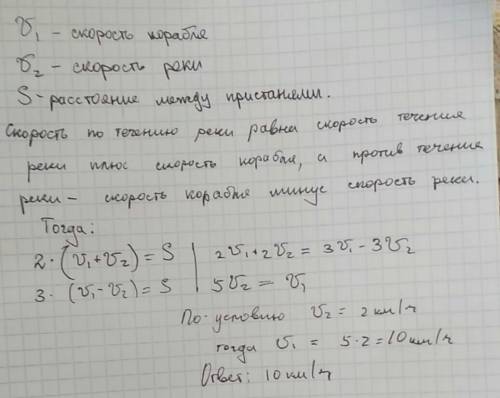 V₁ - скорость корабля
V₂ - скорость реки
S - расстояние между пристанями.
Скорость по течению реки равна скорость течения
реки плюс скорость корабля, а против течение
реки - скорость корабля минус скорость реки.
Тогда:
2·(V₁+V₂)=S | 2V₁+2V₂ = 3V₁-3V₂
3·(V₁-V₂)=S | 5V₂ = V₁
По условию V₂ = 2 км/ч
тогда V₁ = 5·2=10 км/ч
Ответ: 10 км/ч